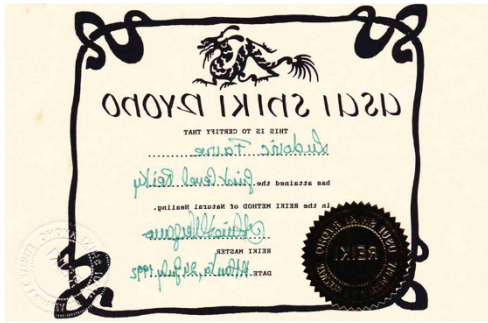 USUI SHIKI RYOHO
THIS IS TO CERTIFY THAT
Ludovic
has attained the First Level Reiky
in the REIKI METHOD of Natural Healing.
REIKI MASTER
DATE. 24 July 1992
REIKI